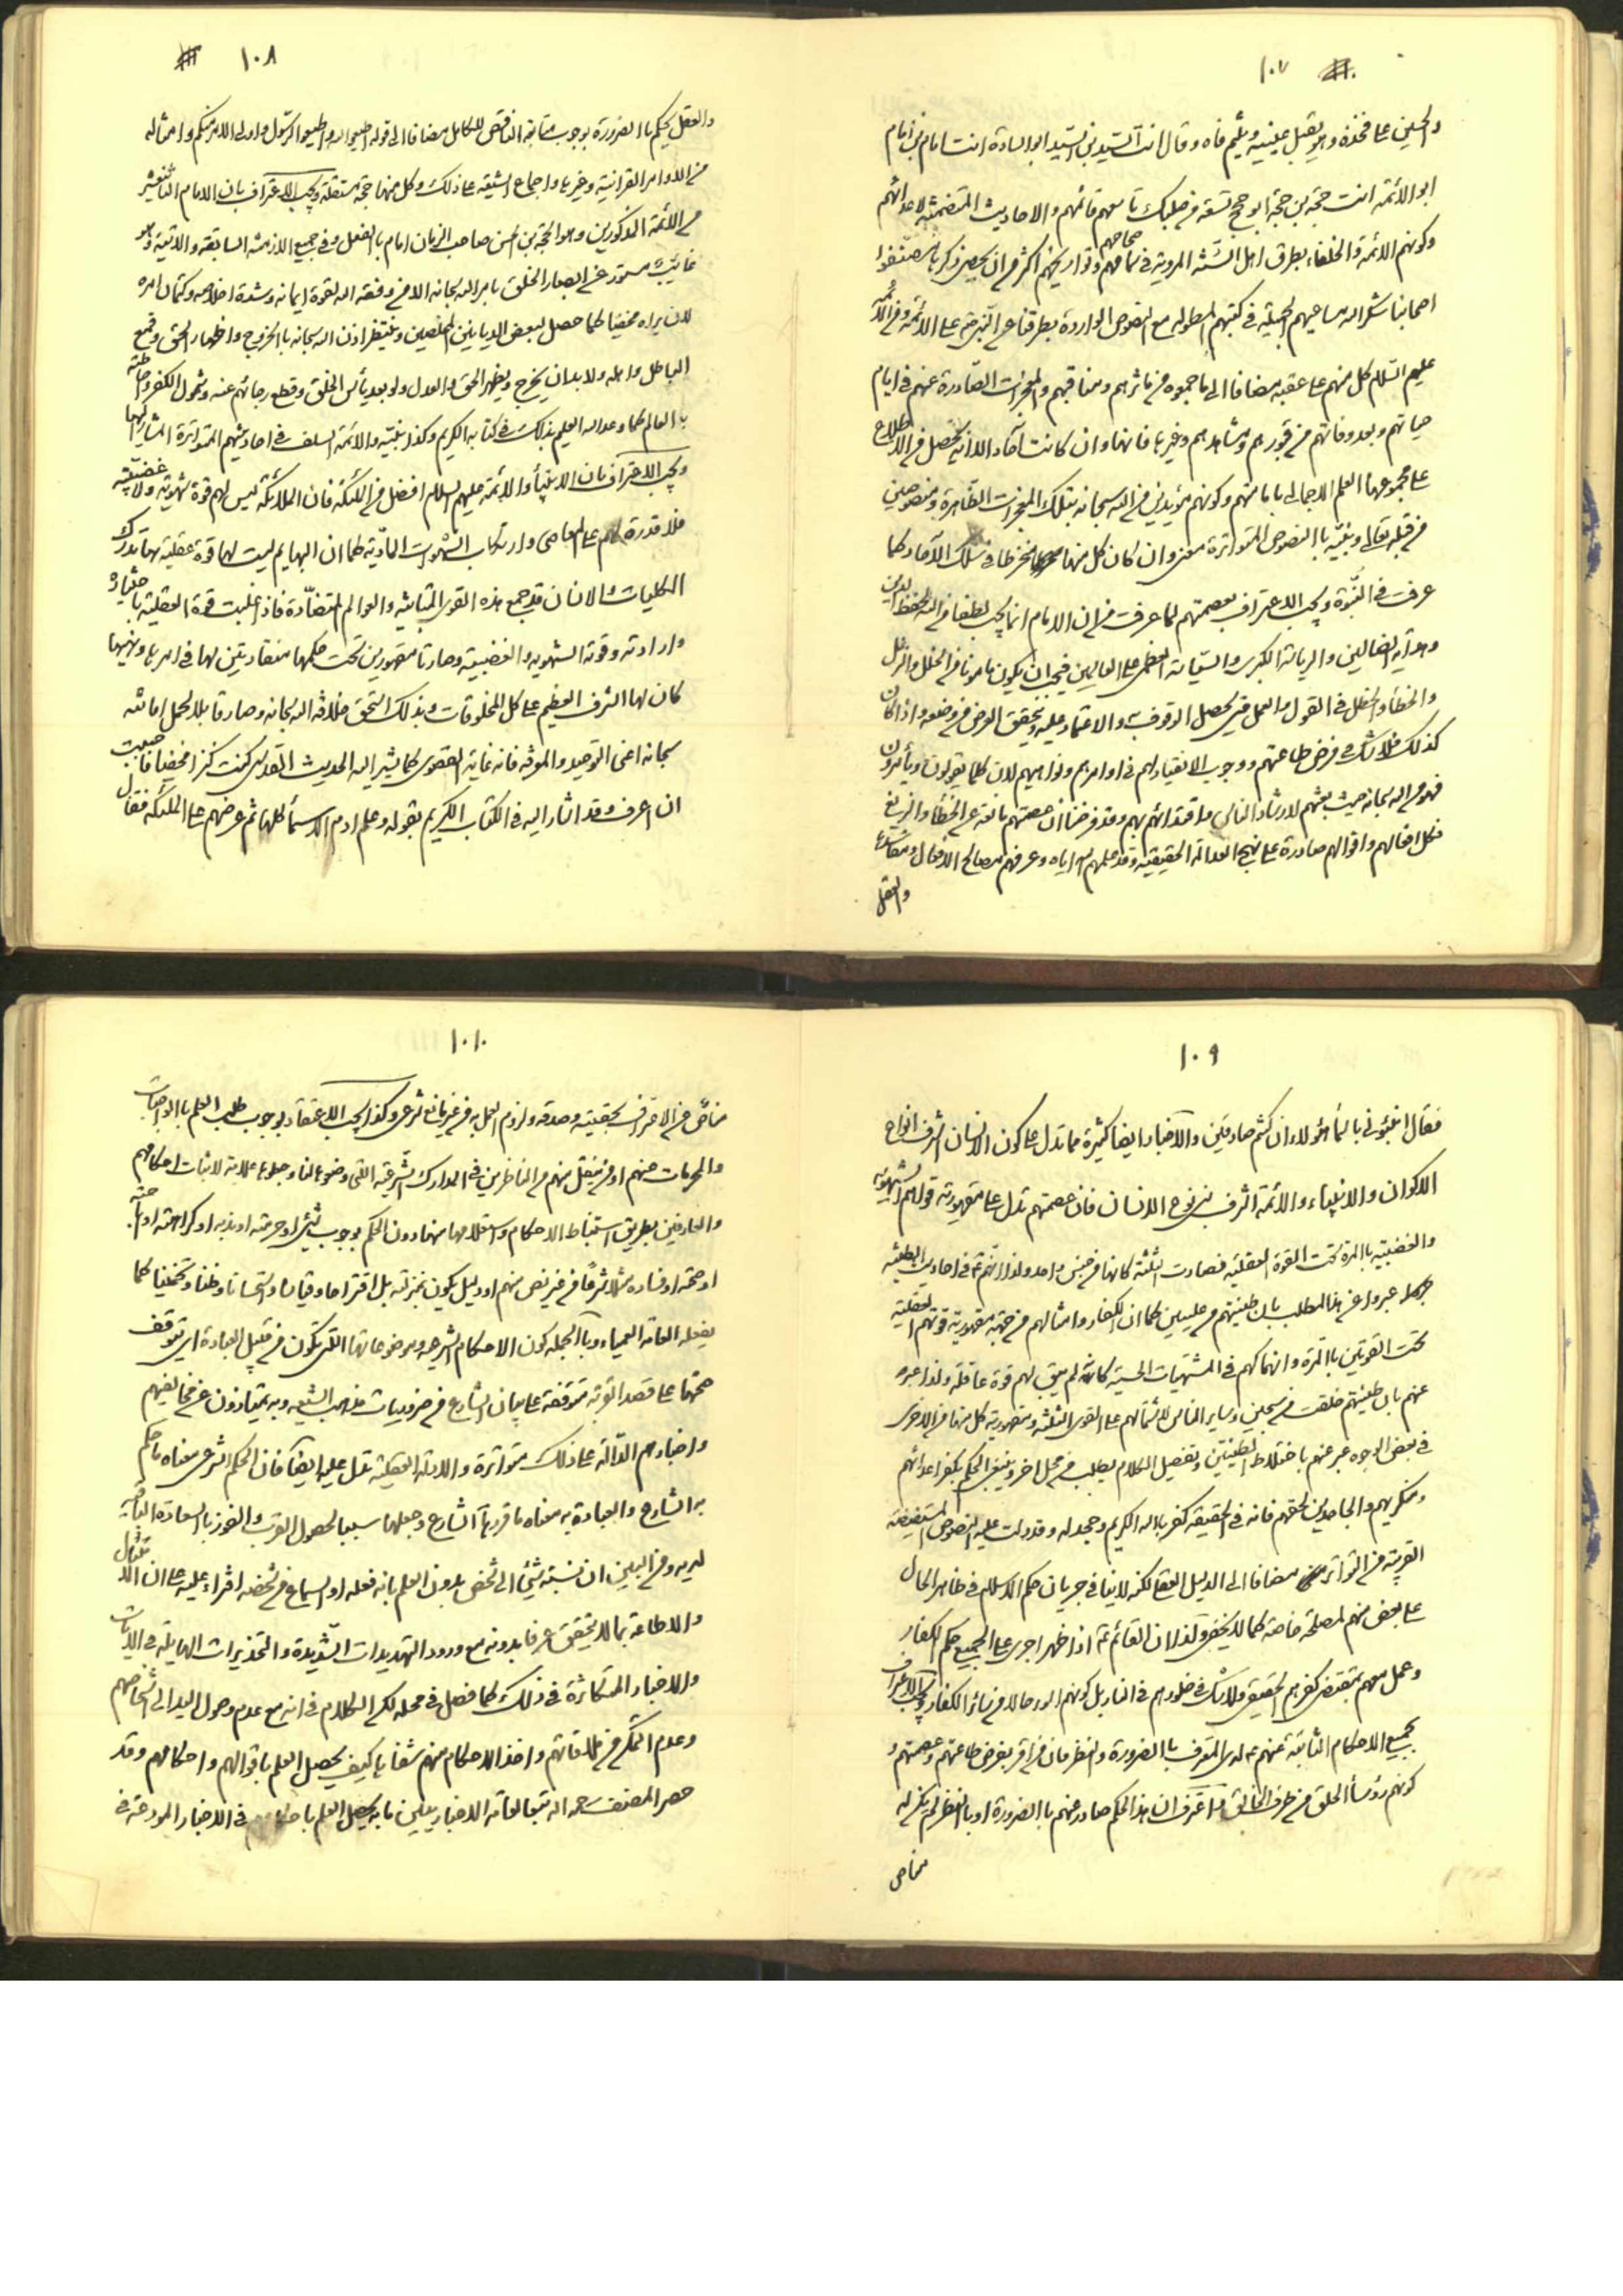 ١٠٧
والحسين على فخذه وهو يقبل عينيه ويلثم فاه وقال انت السيد بن السيد ابو السادة انت امام بن امام
ابو الائمة انت حجة بن حجة ابو حجج تسعة من صلبك تاسعهم قائمهم والاحاديث المتضمنة لاعدادهم
وكونهم الائمة والخلفاء بطرق اهل السنة المروية في صحاحهم وتواريخهم اكثر من ان يحصى ذكرها صنفوا
اصحابنا شكر الله مساعيهم الجميلة في كتبهم المطولة مع النصوص الواردة بطرقنا عن النبي على الائمة ومن الائمة
عليهم السلام كل منهم على عقبه مضافا الى ما جمعوه من مآثرهم ومناقبهم والمعجزات الصادرة عنهم في ايام
حياتهم وبعد وفاتهم من قبورهم ومشاهدهم وغيرها فانها وان كانت آحادا الا انه يحصل من الاطلاع
على مجموعها العلم الاجمالى بامامتهم وكونهم مؤيدين من الله سبحانه بتلك المعجزات الظاهرة ومنصوصين
من قبله تعالى ونبيه بالنصوص المتواترة معنى وان كان كل منها منخرطا في سلك الآحاد كما
عرفت في النبوة ويجب الاعتراف بعصمتهم لما عرفت من ان الامام انما يجب لطفا من الله لحفظ الدين
وهداية الضالين والرياسة الكبرى والسياسة العظمى على العالمين فيجب ان يكون مامونا من الخلل والزلل
والخطأ والخطل في القول والعمل حتى يحصل الوثوق به والاعتماد عليه ويتحقق الغرض من وضعه واذا كان
كذلك فلا شك في فرض طاعتهم ووجوب الانقياد لهم في اوامرهم ونواهيهم لان كلما يقولون ويأمرون
فهو من الله سبحانه حيث بعثهم لارشاد الناس واقتدائهم بهم وقد فرضنا ان عصمتهم مانعة عن الخطأ والزيغ
فكل افعالهم واقوالهم صادرة على نهج العدالة الحقيقية وقد علمهم الله اياه وعرفهم مصالح الافعال ومفاسدها
والعقل
١٠٨
والعقل يحكم باالضرورة بوجوب متابعة الناقص للكامل مضافا الى قوله اطيعوا الله واطيعوا الرسول واولى الامر منكم وامثاله
من الاوامر القرانية وغيرها واجماع الشيعة على ذلك وكل منها حجة مستقلة ويجب الاعتراف بان الامام الثانيعشر
من الائمة المذكورين وهو الحجة بن الحسن صاحب الزمان امام بالفعل وفي جميع الازمنة السابقة والاتية وهو
غائب مستور عن ابصار الخلق بامر الله سبحانه الا من وفقه الله لقوة ايمانه وشدة اخلاصه وكتمان امره
لان يراه مخفيا كما حصل لبعض الديانين المخلصين وينتظر اذن الله سبحانه باالخروج واظهار الحق وقمع
الباطل واهله ولابد ان يخرج ويظهر الحق والعدل ولو بعد يأس الخلق وقطع رجائهم عنه وشمول الكفر واحاطته
بالعالم كما وعد الله العليم بذلك في كتابه الكريم وكذا نبيه والائمة السلف في احاديثهم المتواترة المشار اليها
ويجب الاعتراف بان الانبيآء والائمة عليهم السلام افضل من الملئكة فان الملائكة ليس لهم قوة شهوية ولا غضبية
فلا قدرة لهم على المعاصى وارتكاب الشهوات المادية كما ان البهايم ليست لها قوة عقلية بها تدرك
الكليات والانسان قد جمع هذه القوى المتباينة والعوالم المتضادة فاذا غلبت قوة العقلية باختياره
وارادته وقوته الشهوية والغضبية وصارتا مقهورين تحت حكمها منقادتين لها في امرها ونهيها
كان لها الشرف العظيم على كل المخلوقات وبذلك استحق خلافة الله سبحانه وصار قابلا لحمل امانته
سبحانه اعنى التوحيد والمعرفة فانه غاية القصوى كما يشير اليه الحديث القدسى كنت كنزا مخفيا فاحببت
ان اعرف وقد اشار اليه في الكتاب الكريم بقوله وعلم ادم الاسمآء كلها ثم عرضهم على الملئكة فقال
١٠٩
فقال انبئونى باسمآء هؤلاء ان كنتم صادقين والاخبار ايضا كثيرة مما تدل على كون الانسان اشرف انواع
الاكوان والانبياء والائمة اشرف بنى نوع الانسان فان عصمتهم تدل على مقهورية قواهم الشهوية
والغضبية باالمرة تحت القوة العقلية فصارت الثلثة كانها من جنس واحد ولذا انهم ع في احاديث الطينة
عبروا عن هذا المطلب بان طينتهم من عليين كما ان الكفار وامثالهم من جهة مقهورية قوتهم العقلية
تحت القوتين باالمرة وانهماكهم في المشتهيات الحسية كانه لم يبق لهم قوة عاقلة ولذا عبر
عنهم بان طينتهم خلقت من سجين وساير الناس لاشتمالهم على القوى الثلثة ومقهورية كل منها من الاخرى
في بعض الوجوه عبر عنهم باختلاط الطينتين وتفصيل الكلام يطلب في محل اخر وينبغى الحكم بكفر اعدائهم
ومنكريهم والجاحدين لحقهم فانه في الحقيقة كفر بالله الكريم وجحد له وقد دلت عليه النصوص المستفيضة
القريبة من التواتر مضافا الى الدليل العقلى لكنه لاينافى جريان حكم الاسلام في ظاهر الحال
على بعض منهم لمصلحة خاصة كما لا يخفى وكذا لان القائم ع اذا ظهر اجرى على الجميع حكم الكفار
وعمل معهم بمقتضى كفرهم الحقيقى ولا شك في خلودهم في النار بل كونهم اسوء حالا من سائر الكفار ويجب الاعتراف
بجميع الاحكام الثابتة عنهم ع لدى المعترف باالضرورة والنظر فان من اقر بفرض طاعتهم وعصمتهم و
كونهم رؤسآء الخلق من طرف الخالق واعترف ان هذا الحكم صادر عنهم باالضرورة او بالنظر لم يكن له
مناص
١٠١٠
مناص من الاقرار بحقيته وصدقه ولزوم العمل به من غير مانع شرعى وكذا يجب الاعتقاد بوجوب طلب العلم باالواجبات
والمحرمات منهم او من ينقل منهم من الناظرين في المدارك الشرعية التى وضعوا لنا وجعلوها علامة لاثبات احكامهم
والعارفين بطريق استنباط الاحكام واستعلامها منها دون الحكم بوجوب شئ او حرمته او ندبه او كراهته او اباحته
او صحته او فساده مثلا شرعا من غير نص منهم او دليل يكون بمنزلته بل اقتراحا وقياسا واستحسانا وظنا وتخمينا كما
يفعله العامة العمياء وبالجملة كون الاحكام الشرعية وموضوعاتها التى تكون من قبيل العبادة اى يتوقف
صحتها على قصد القربة متوقفة على بيان الشارع من ضروريات مذهب الشيعة وبه يمتازون عن مخالفيهم
واخبارهم الدالة على ذلك متواترة والادلة العقلية تدل عليه ايضا فان الحكم الشرعى معناه ما حكم
به الشارع والعبادة به معناه ما قررها الشارع وجعلها سببا لحصول القرب والفوز بالسعادة التامة
لديه ومن البين ان نسبة شئ الى شخص بدون العلم بانه فعله او السماع من شخصه افتراء عليه على ان الامتثال
والاطاعة مما لا يتحقق عرفا بدونه مع ورود التهديدات الشديدة والتحذيرات الهايلة في الايات
والاخبار المتكاثرة في ذلك كما فصل في محله لكن الكلام في انه مع عدم وصول اليد الى اشخاصهم
وعدم التمكن من ملاقاتهم واخذ الاحكام منهم شفاها كيف يحصل العلم باقوالهم واحكامهم وقد
حصر المصنف رحمه الله تبعا لعامة الاخباريين ما به يحصل العلم في الاخبار المودعة في